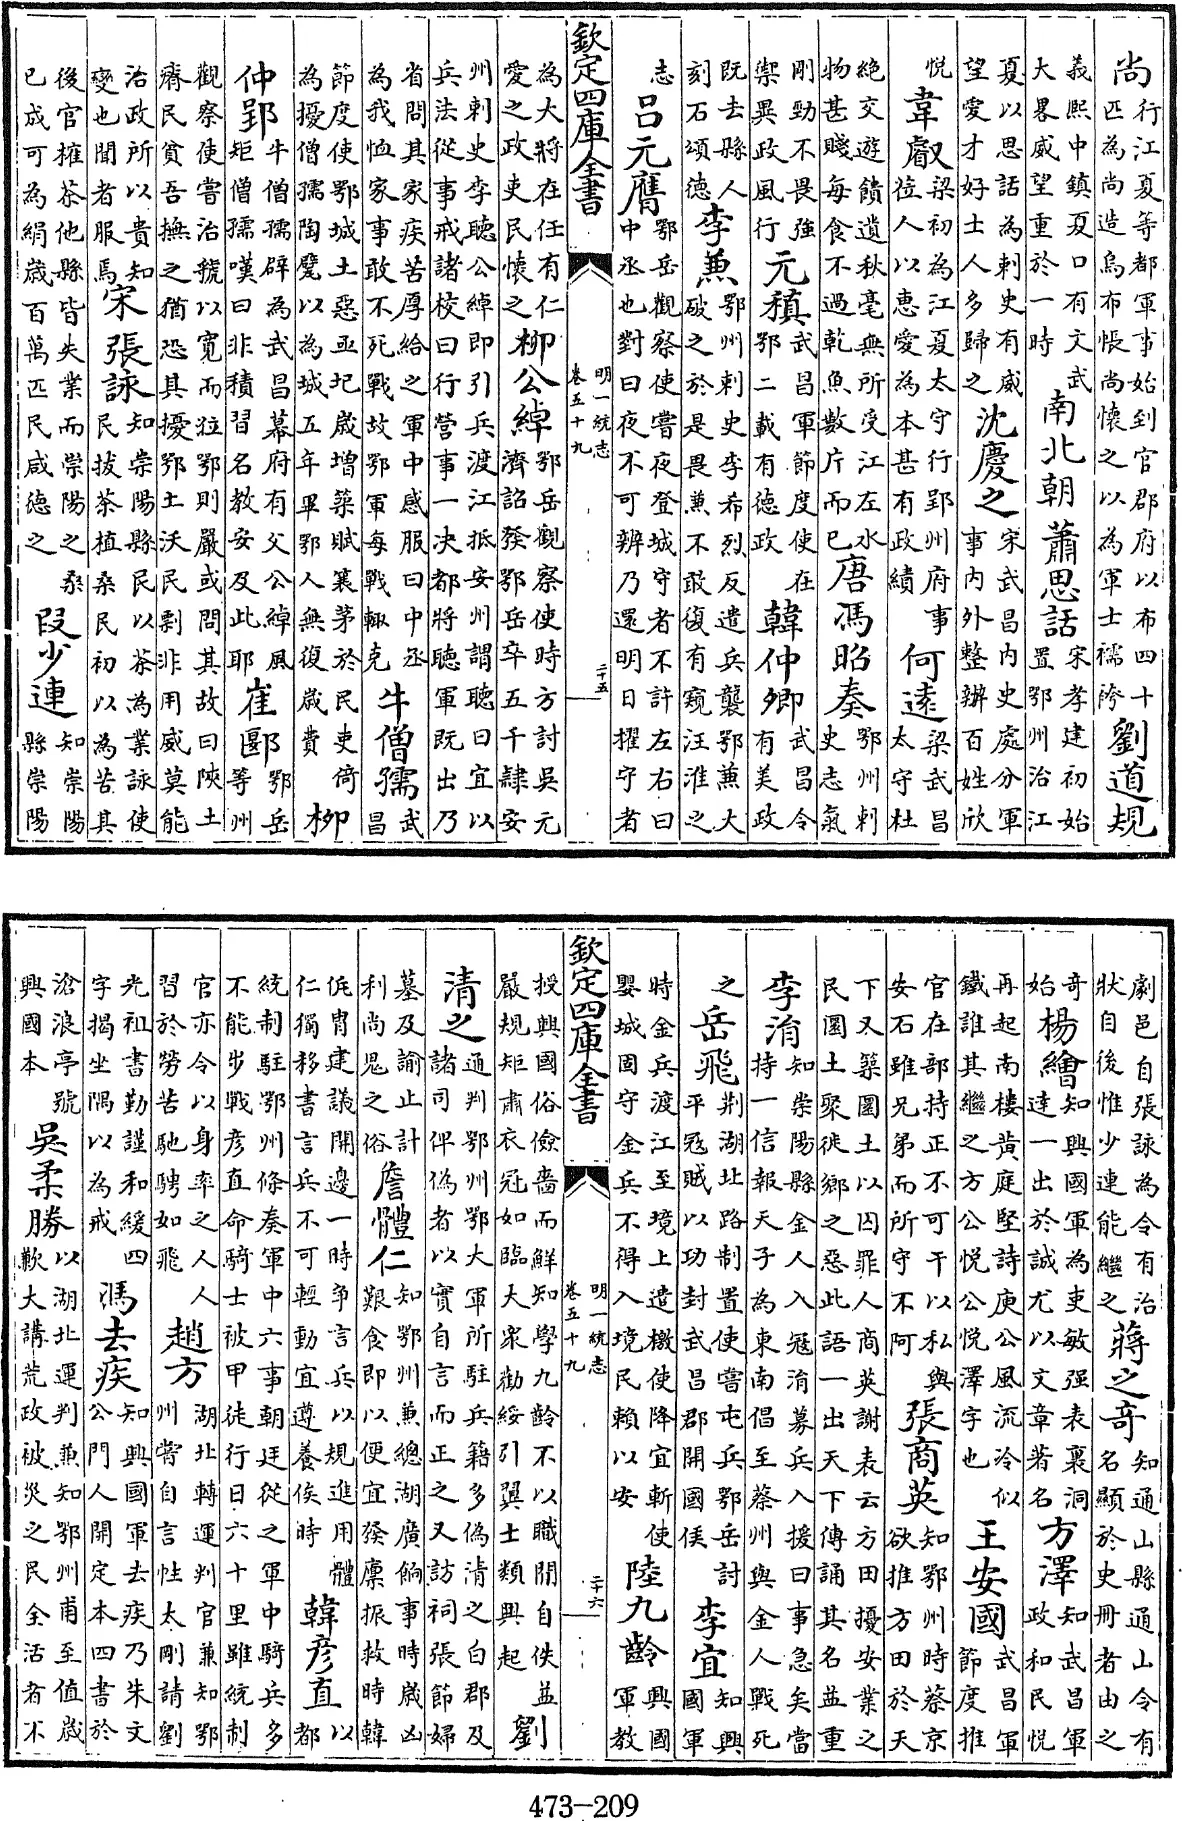 尚行江夏等都軍事始到官郡府以布四十匹為尚造烏布帳尚懷之以為軍士襦袴劉道規
義熙中鎮夏口有文武大畧威望重於一時南北朝蕭思話宋孝建初始置鄂州治江
夏以思話為刺史有威望愛才好士人多歸之沈慶之宋武昌內史處分軍事內外整辦百姓欣
悦韋叡梁初為江夏太守行郢州府事拉人以惠愛為本甚有政績何遠梁武昌太守杜
絶交遊饋遺秋毫無所受江左水物甚賤每食不過乾魚數片而已唐馮昭奏鄂州刺史志氣
剛勁不畏強禦異政風行元稹武昌軍節度使在鄂二載有德政韓仲卿武昌令有美政
既去縣人刻石頌德李兼鄂州刺史李希烈反遣兵襲鄂兼大破之於是畏兼不敢復有窺汪淮之
志呂元膺鄂岳觀察使嘗夜登城守者不許左右曰中丞也對曰夜不可辨乃還明日擢守者
欽定四庫全書
明一統志
卷五十九
二十五
為大將在任有仁愛之政吏民懷之柳公綽鄂岳觀察使時方討吳元濟詔發鄂岳卒五千隸安
州刺史李聽公綽即引兵渡江抵安州謂聽曰宜以兵法從事戒諸校曰行營事一决都將聽軍既出乃
省問其家疾苦厚給之軍中感服曰中丞為我恤家事敢不死戰故鄂軍每戰輙克牛僧孺武昌
節度使鄂城土惡亟圮歲增築賦蓑茅於民吏倚為擾僧孺陶甓以為城五年畢鄂人無復歲費柳
仲郢牛僧孺辟為武昌幕府有父公綽風矩僧孺嘆曰非積習名教安及此耶崔郾鄂岳等州
觀察使嘗治虢以寛而往鄂則嚴或問其故曰陜土瘠民貧吾撫之猶恐其擾鄂土沃民剽非用威莫能
治政所以貴知變也聞者服焉宋張詠知崇陽縣民以茶為業詠使民拔茶植桑民初以為苦其
後官榷茶他縣皆失業而崇陽之桑已成可為絹歲百萬匹民咸德之段少連知崇陽縣崇陽
劇邑自張詠為令有治狀自後惟少連能繼之蔣之奇知通山縣通山令有名顯於史冊者由之
奇始楊繪知興國軍為吏敏强表裏洞達一出於誠尤以文章著名方澤知武昌軍政和民悦
再起南樓黄庭堅詩庾公風流冷似鐵誰其繼之方公悦公悦澤字也王安國武昌軍節度推
官在部持正不可干以私與安石雖兄弟而所守不阿張商英知鄂州時蔡京欲推方田於天
下又築圜土以囚罪人商英謝表云方田擾安業之民圜土聚徙鄉之惡此語一出天下傳誦其名益重
李洧知崇陽縣金人入冦洧募兵入援曰事急矣當持一信報天子為東南倡至蔡州與金人戰死
之岳飛荆湖北路制置使嘗屯兵鄂岳討平冦賊以功封武昌郡開國侯李宜知興國軍
時金兵渡江至境上遣檄使降宜斬使嬰城固守金兵不得入境民賴以安陸九齡興國軍教
欽定四庫全書
明一統志
卷五十九
二十六
授興國俗儉嗇而鮮知學九齡不以職閒自佚益嚴規矩肅衣冠如臨大衆勸綏引翼士類興起劉
清之通判鄂州鄂大軍所駐兵籍多偽清之白郡及諸司俾偽者以實自言而正之又訪祠張節婦
墓及諭止計利尚鬼之俗詹體仁知鄂州兼總湖廣餉事時歲凶艱食即以便宜發廪振救時韓
侂胄建議開邊一時争言兵以規進用體仁獨移書言兵不可輕動宜遵養俟時韓彦直以都
統制駐鄂州條奏軍中六事朝廷從之軍中騎兵多不能步戰彦直命騎士被甲徒行日六十里雖統制
官亦令以身率之人人習於勞苦馳騁如飛趙方湖北轉運判官兼知鄂州嘗自言性太剛請劉
光祖書勤謹和緩四字揭坐隅以為戒馮去疾知興國軍去疾乃朱文公門人開定本四書於
滄浪亭號興國本吳柔勝以湖北運判兼知鄂州甫至值歲歉大講荒政被災之民全活者不
473-209